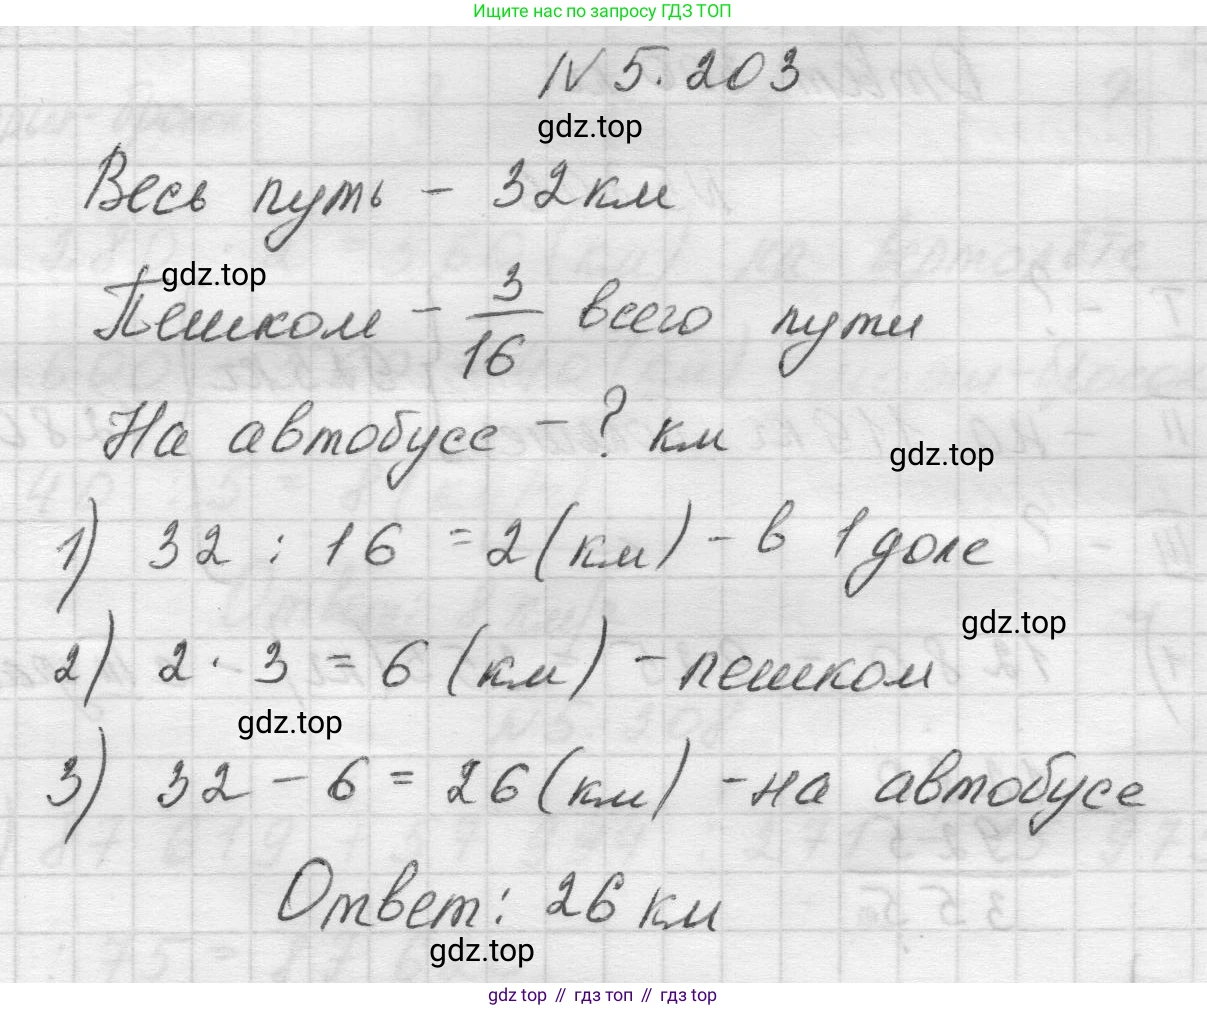 Ищите нас по запросу ГДЗ ТОП
N 5.203
gdz.top
Весь путь - 32 км
gdz.top
Пешком - 3/16 всего пути
На автобусе - ? км
gdz.top
1) 32 : 16 = 2 (км) - в 1 доле
gdz.top
2) 2 · 3 = 6 (км) - пешком
gdz.top
3) 32 - 6 = 26 (км) - на автобусе
Ответ: 26 км
gdz.top
gdz top // гдз топ // gdz top